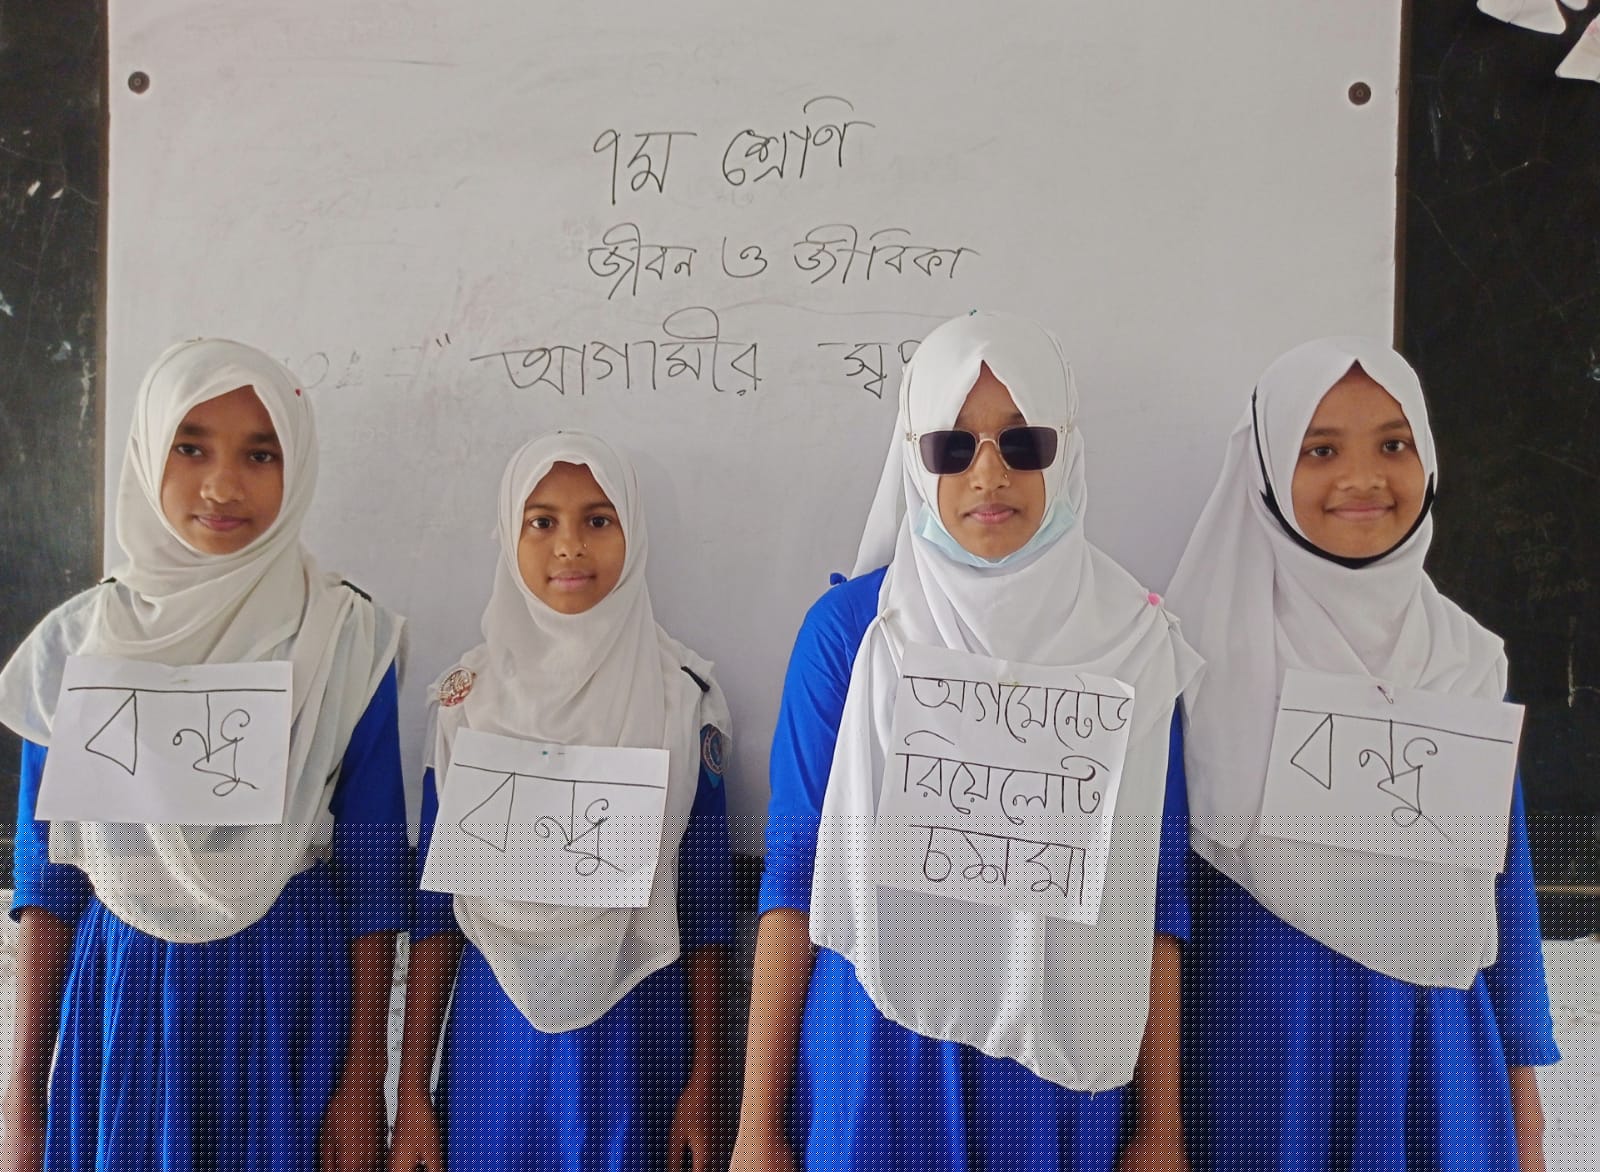 ৭ম শ্রেণি
জীবন ও জীবিকা
"আগামীর
বন্ধু
বন্ধু
অগমেন্টেড
রিয়েলেটি
চশমা
বন্ধু